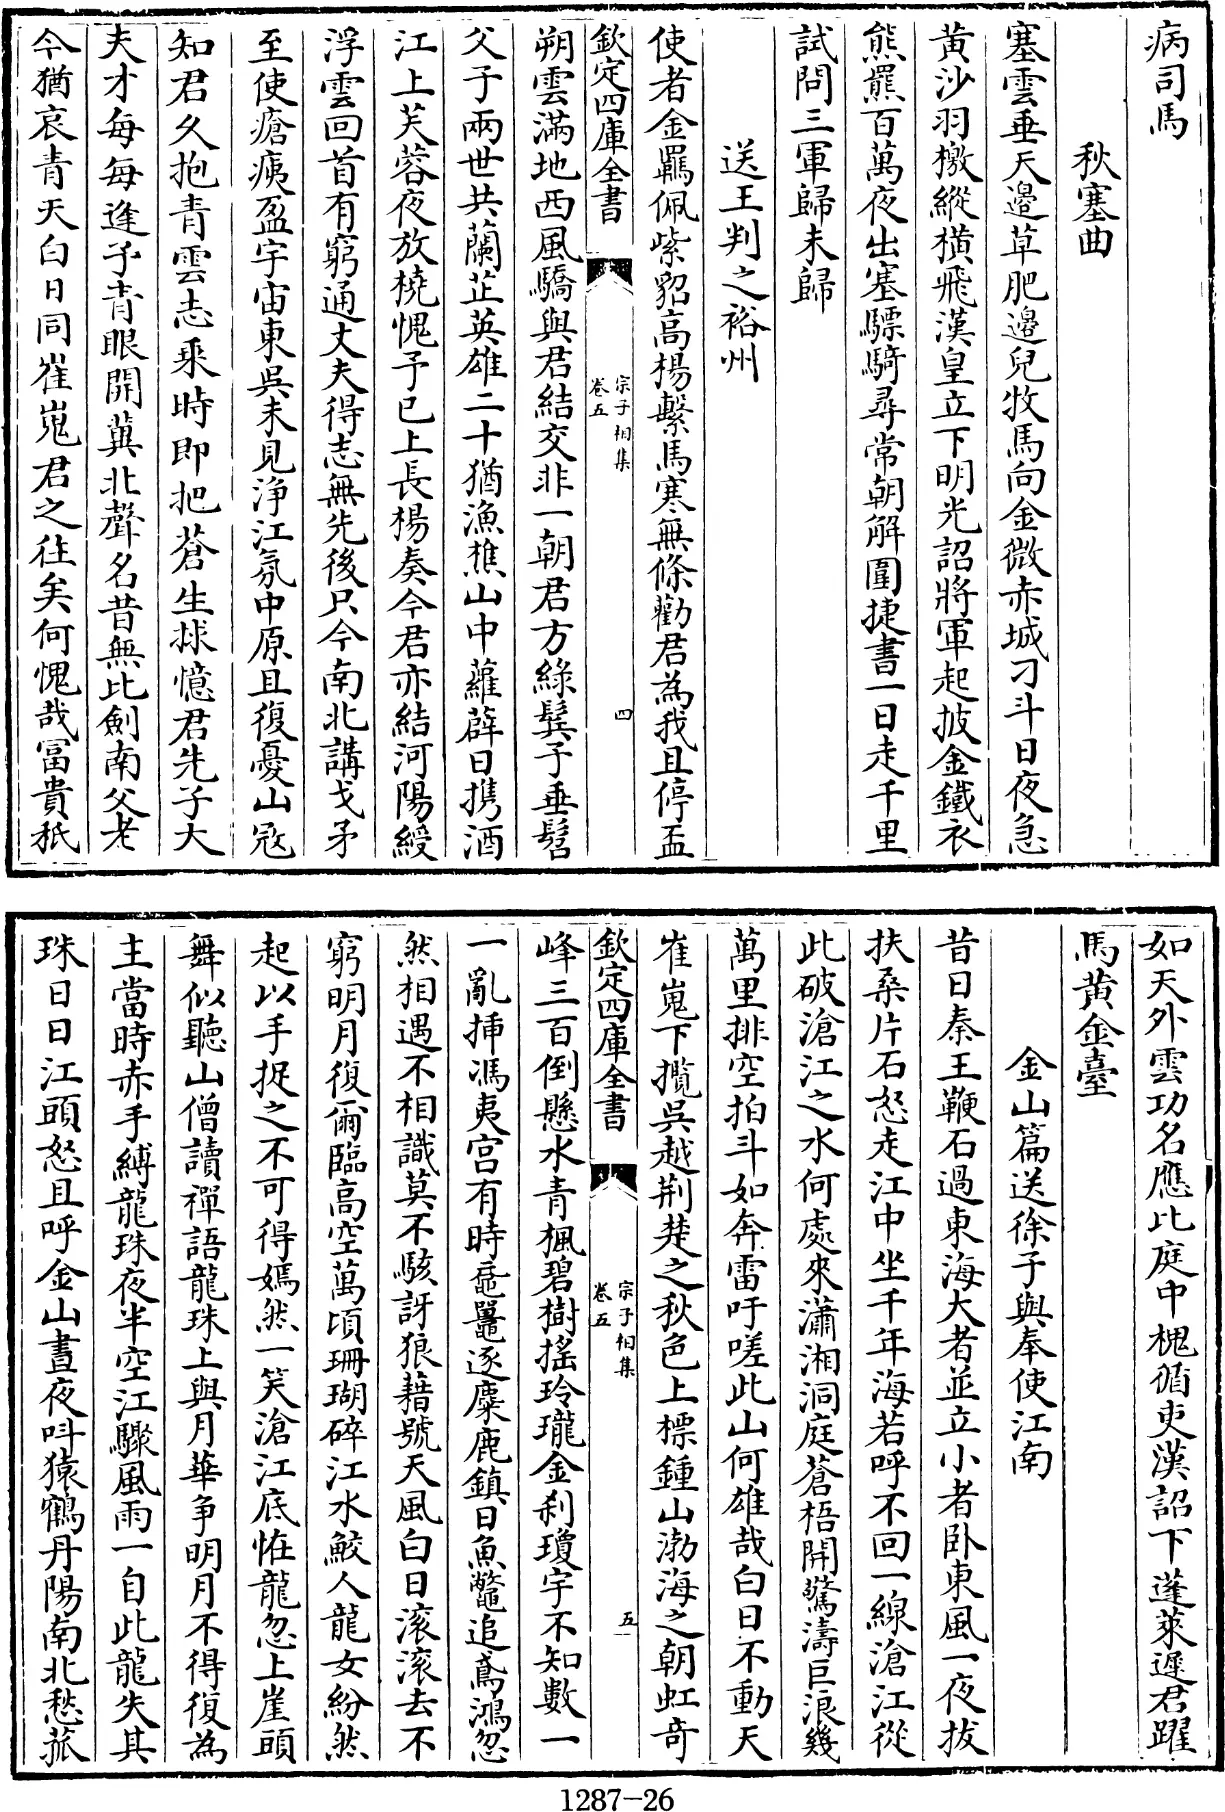 病司馬
秋塞曲
塞雲垂天邉草肥邉兒牧馬向金微赤城刁斗日夜急
黄沙羽檄縱横飛漢皇立下明光詔將軍起披金鐵衣
熊羆百萬夜出塞驃騎尋常朝解圍捷書一日走千里
試問三軍歸未歸
送王判之裕州
使者金羈佩紫貂高楊繫馬寒無條勸君為我且停盃
欽定四庫全書
宗子相集
卷五
四
朔雲滿地西風驕與君結交非一朝君方緑鬂子垂髫
父子兩世共蘭芷英雄二十猶漁樵山中蘿薜日携酒
江上芙蓉夜放橈愧予已上長楊奏今君亦結河陽綬
浮雲回首有窮通丈夫得志無先後只今南北講戈矛
至使瘡痍盈宇宙東吳未見浄江氛中原且復憂山冦
知君久抱青雲志乘時即把蒼生捄憶君先子大
夫才每每逢予青眼開冀北聲名昔無比劍南父老
今猶哀青天白日同崔嵬君之往矣何愧哉富貴秖
如天外雲功名應比庭中槐循吏漢詔下蓬萊遲君躍
馬黄金臺
金山篇送徐子與奉使江南
昔日秦王鞭石過東海大者並立小者卧東風一夜拔
扶桑片石怒走江中坐千年海若呼不回一線滄江從
此破滄江之水何處來瀟湘洞庭蒼梧開驚濤巨浪幾
萬里排空拍斗如奔雷吁嗟此山何雄哉白日不動天
崔嵬下攬吳越荆楚之秋色上標鍾山渤海之朝虹奇
欽定四庫全書
宗子相集
卷五
五
峰三百倒懸水青楓碧樹摇玲瓏金刹瓊宇不知數一
一亂挿馮夷宫有時黿鼉逐麋鹿鎮日魚鼈追鳶鴻忽
然相遇不相識莫不駭訝狼藉號天風白日滚滚去不
窮明月復爾臨高空萬頃珊瑚碎江水鮫人龍女紛然
起以手捉之不可得嫣然一笑滄江底恠龍忽上崖頭
舞似聽山僧讀禪語龍珠上與月華争明月不得復為
主當時赤手縛龍珠夜半空江驟風雨一自此龍失其
珠日日江頭怒且呼金山晝夜呌猿鶴丹陽南北愁菰
1287-26